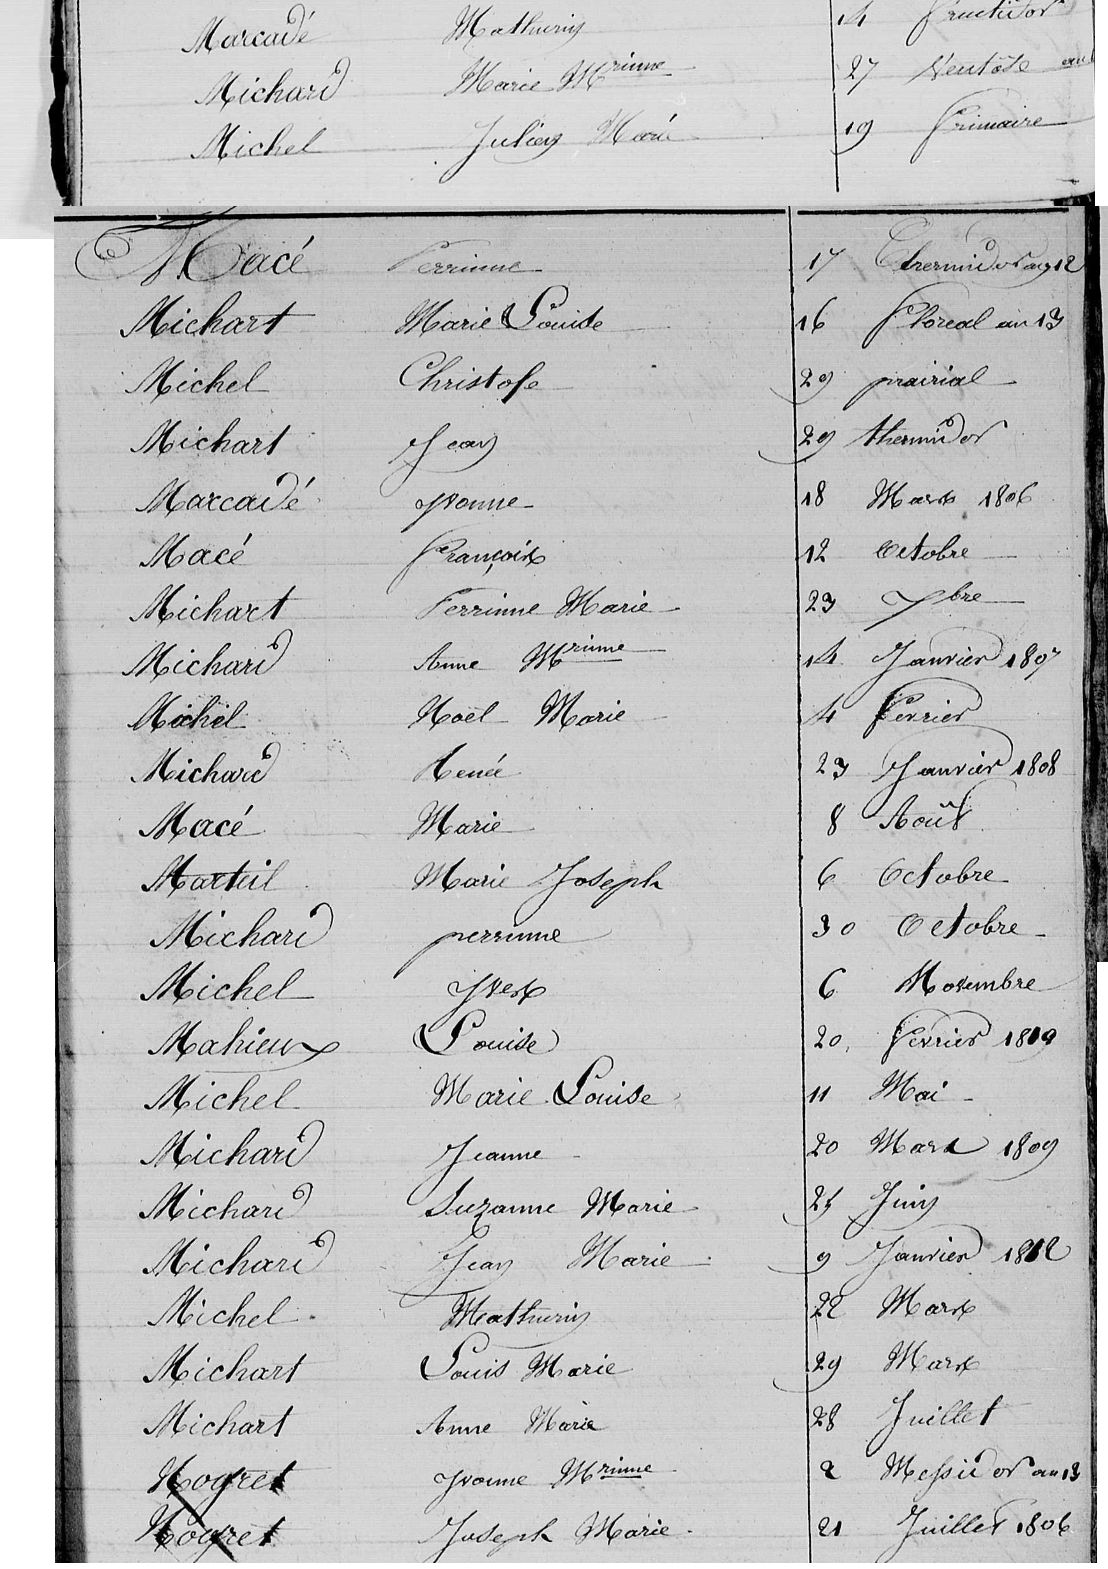 Marcadé Mathurin 14 fructidor
Michard Marie Mrinne 27 Ventôse an
Michel Julien Marie 19 frimaire
Macé Perrinne 17 Thermidor an 12
Michart Marie Louise 16 floreal an 13
Michel Christofe 29 prairial
Michart Jean 29 thermidor
Marcadé yvonne 18 Mars 1806
Macé François 12 octobre
Michart Perrinne Marie 23 7bre
Michard Anne Mrinne 14 Janvier 1807
Michel Noël Marie 4 fevrier
Michard Renée 23 Janvier 1808
Macé Marie 8 Août
Marteil Marie Joseph 6 Octobre
Michard perrinne 30 Octobre
Michel yves 6 Novembre
Mahieux Louise 20 fevrier 1819
Michel Marie Louise 11 Mai
Michard Jeanne 20 Mars 1809
Michard Suzanne Marie 25 Juin
Michard Jean Marie 9 Janvier 1812
Michel Mathurin 22 Mars
Michart Louis Marie 29 Mars
Michart Anne Marie 28 Juillet
Nogret yvonne Mrinne 2 Messidor an 13
Nogret Joseph Marie 21 Juillet 1806